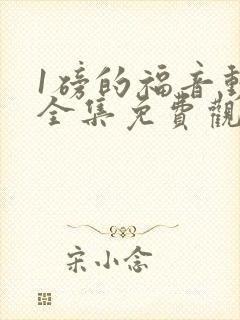 1磅的福音動
全集免費觀
宋小念